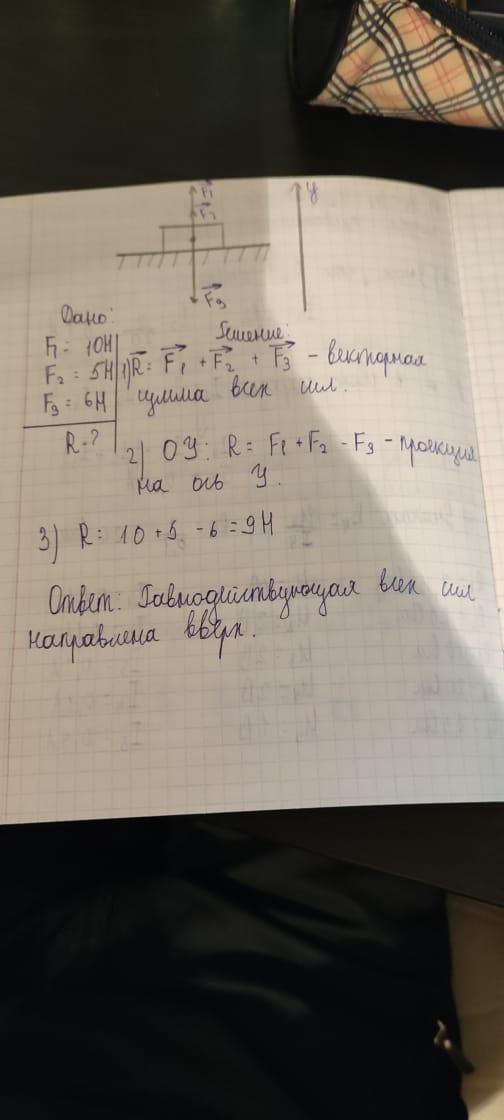 F₁
F₂
y
F₃
Дано:
F₁ = 10Н
F₂ = 5Н
F₃ = 6Н
R-?
Решение:
1) R = F₁ + F₂ + F₃ - векторная
сумма всех сил.
2) ОУ: R = F₁ + F₂ - F₃ - проекция
на ось У.
3) R = 10 + 5 - 6 = 9Н
Ответ: Равнодействующая всех сил
направлена вверх.